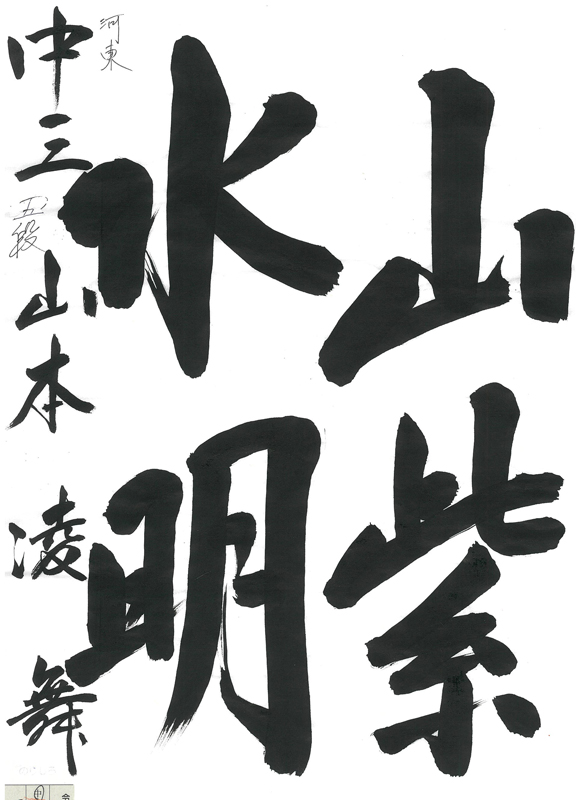 山紫
水明
河東
中三 五段 山本 凌舞